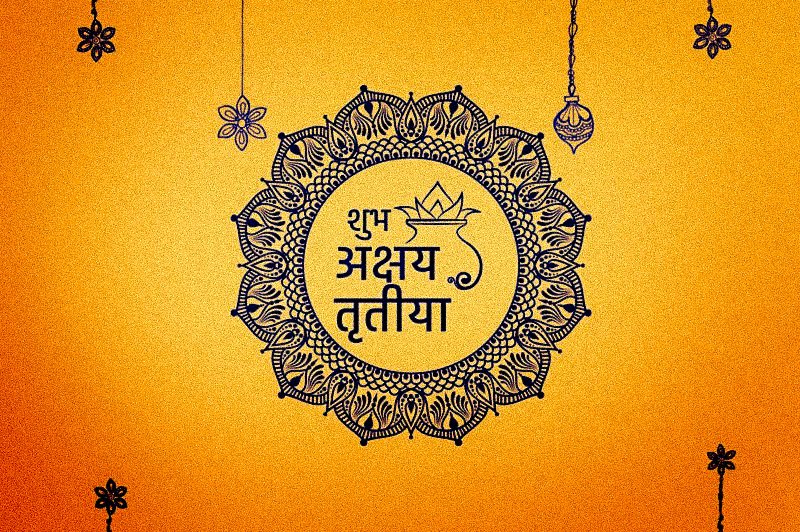 शुभ
अक्षय
तृतीया